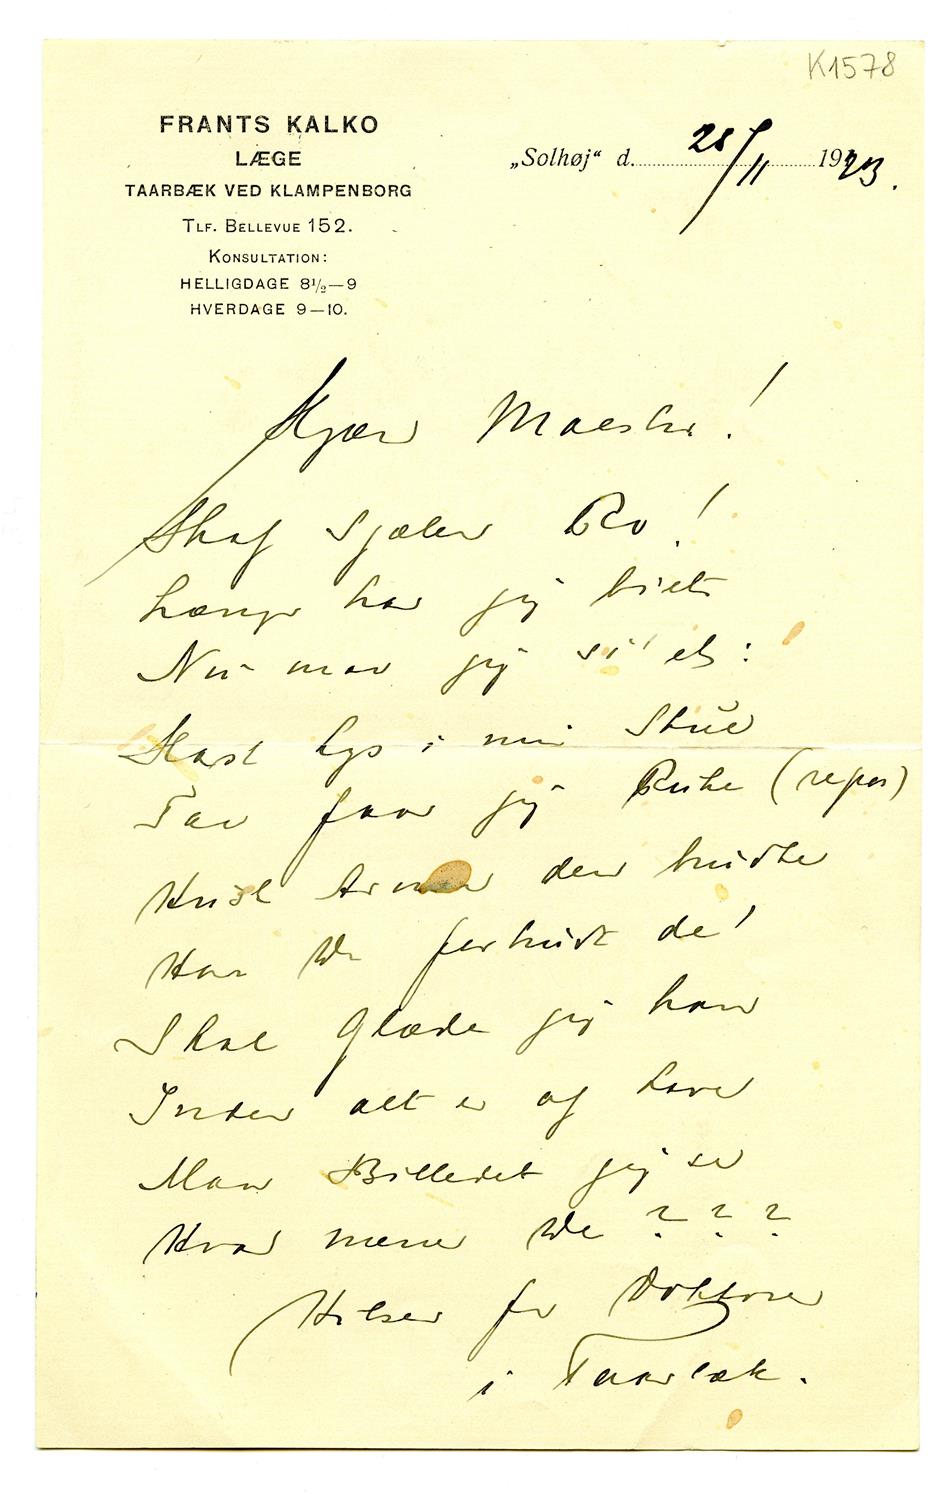 K1578
FRANTS KALKO
LÆGE
TAARBÆK VED KLAMPENBORG
TLF. BELLEVUE 152.
KONSULTATION:
HELLIGDAGE 8½—9
HVERDAGE 9—10.
„Solhøj" d. 28/11 1923.
Kjære Maestro!
Skaf Sjælen Ro!
Længe har jeg biet
Nu maa jeg si' et:
Kast Lys i min Stue
Saa faar jeg Ruhe (repos)
Husk Armen den brudte
Har De forbudt de!
Skal Glæde jeg have
Inden alt er af Lave
Maa Billedet jeg se
Hvad mener De ? ? ?
Hilsen fra Doktoren
i Taarbæk.